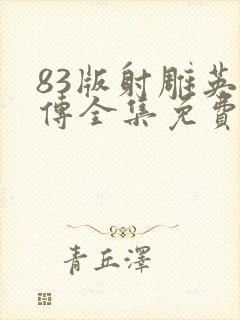 83版射雕英
傳全集免費
青丘澤